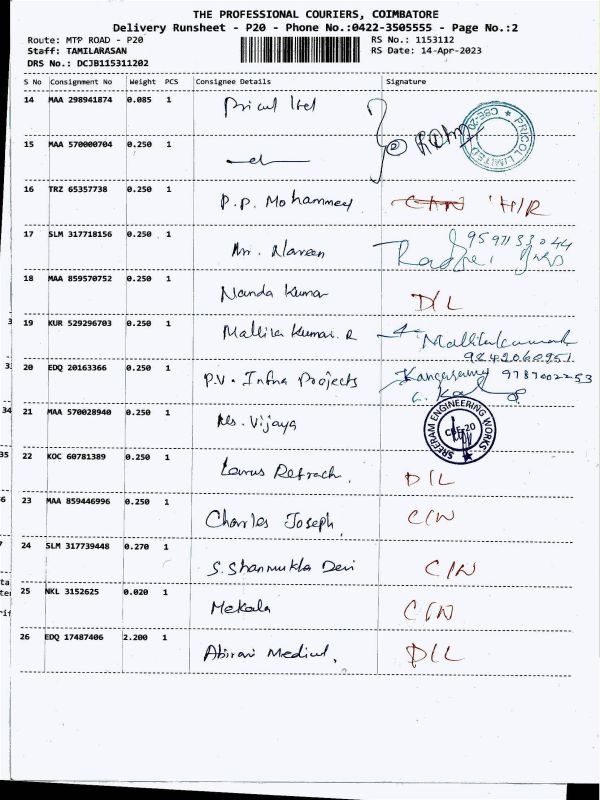 THE PROFESSIONAL COURIERS, COIMBATORE
Delivery Runsheet - P20 - Phone No.:0422-3505555 - Page No.:2
Route: MTP ROAD - P20 RS No.: 1153112
Staff: TAMILARASAN RS Date: 14-Apr-2023
DRS No.: DCJB115311202
S No Consignment No Weight PCS Consignee Details Signature
14 MAA 298941874 0.085 1
PRICOL LIMITED ★ CBE-20
15 MAA 570000704 0.250 1
16 TRZ 65357738 0.250 1
P.P. Mohammey H/R
17 SLM 317718156 0.250 1
Mr. Naveen 9597133044
18 MAA 859570752 0.250 1
Nanda Kumar D/L
19 KUR 529296703 0.250 1
Mallika Kumar. R
20 EDQ 20163366 0.250 1
P.V. Infra Projects 9787002253
21 MAA 570028940 0.250 1
Ms. Vijaya SREERAM ENGINEERING WORKS CBE-20
22 KOC 60781389 0.250 1
D/L
23 MAA 859446996 0.250 1
Charles Joseph C/N
24 SLM 317739448 0.270 1
S. Shanmukla Devi C/N
25 NKL 3152625 0.020 1
Mekala C/N
26 EDQ 17487406 2.200 1
D/L